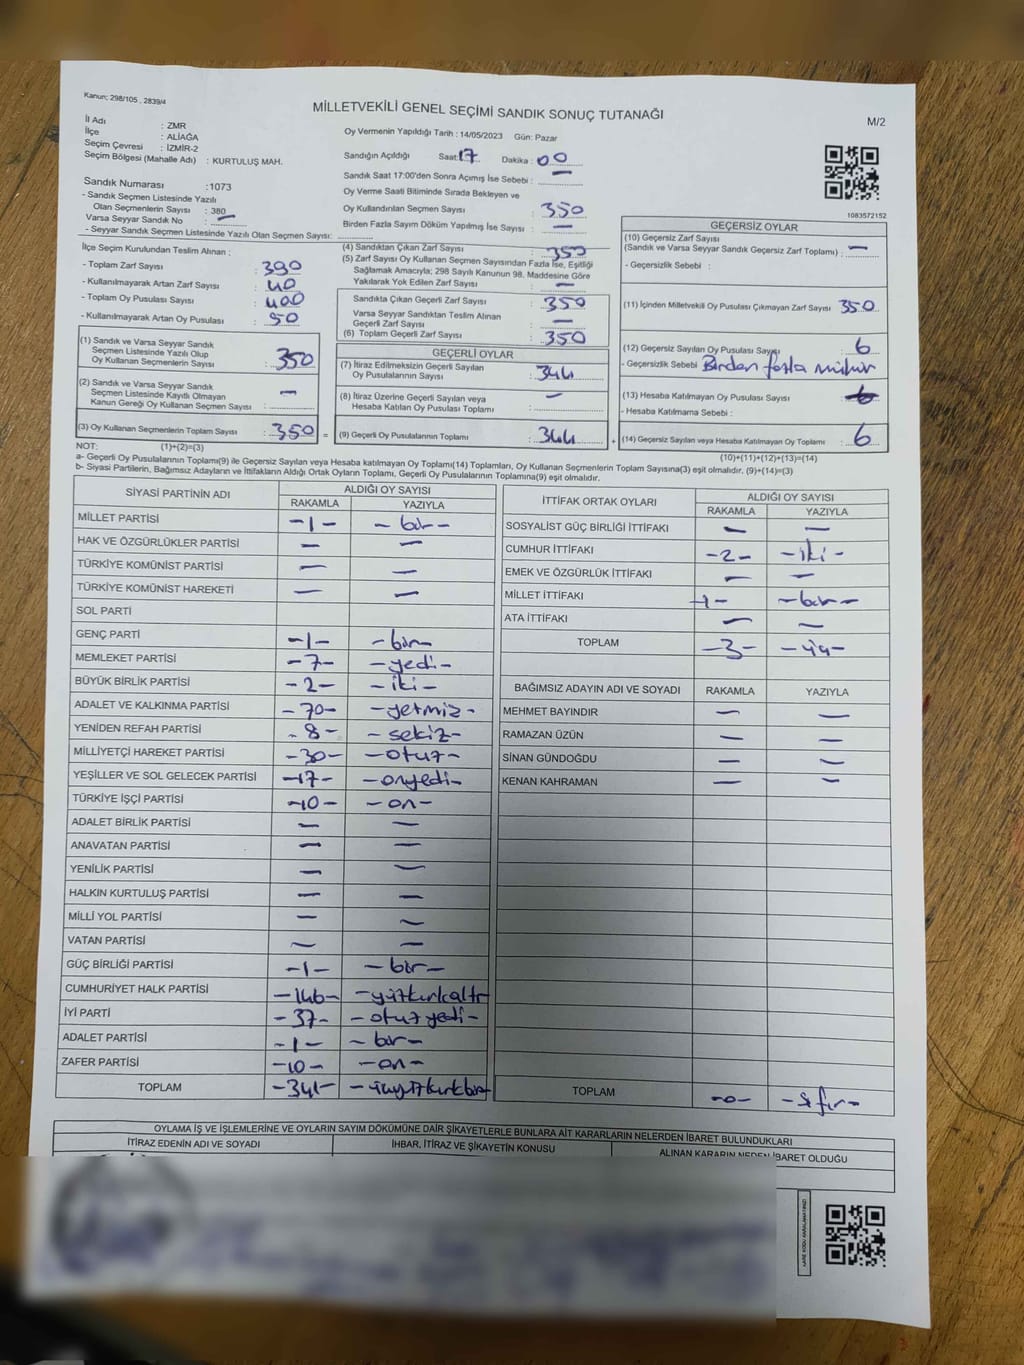 Kanun; 298/105 , 2839/4
MİLLETVEKİLİ GENEL SEÇİMİ SANDIK SONUÇ TUTANAĞI
M/2
İl Adı : ZMR
İlçe : ALİAĞA
Seçim Çevresi : İZMİR-2
Seçim Bölgesi (Mahalle Adı) : KURTULUŞ MAH.
Sandık Numarası :1073
- Sandık Seçmen Listesinde Yazılı
Olan Seçmenlerin Sayısı : 380
Varsa Seyyar Sandık No : —
- Seyyar Sandık Seçmen Listesinde Yazılı Olan Seçmen Sayısı:
Oy Vermenin Yapıldığı Tarih : 14/05/2023 Gün: Pazar
Sandığın Açıldığı Saat: 17 Dakika : 00
Sandık Saat 17:00'den Sonra Açımış İse Sebebi : —
Oy Verme Saati Bitiminde Sırada Bekleyen ve
Oy Kullandırılan Seçmen Sayısı : 350
Birden Fazla Sayım Döküm Yapılmış İse Sayısı : —
1083572152
İlçe Seçim Kurulundan Teslim Alınan :
- Toplam Zarf Sayısı : 390
- Kullanılmayarak Artan Zarf Sayısı : 40
- Toplam Oy Pusulası Sayısı : 400
- Kullanılmayarak Artan Oy Pusulası : 50
(1) Sandık ve Varsa Seyyar Sandık
Seçmen Listesinde Yazılı Olup
Oy Kullanan Seçmenlerin Sayısı : 350
(2) Sandık ve Varsa Seyyar Sandık
Seçmen Listesinde Kayıtlı Olmayan —
Kanun Gereği Oy Kullanan Seçmen Sayısı :
(3) Oy Kullanan Seçmenlerin Toplam Sayısı : 350 =
(4) Sandıktan Çıkan Zarf Sayısı : 350
(5) Zarf Sayısı Oy Kullanan Seçmen Sayısından Fazla İse, Eşitliği
Sağlamak Amacıyla; 298 Sayılı Kanunun 98. Maddesine Göre
Yakılarak Yok Edilen Zarf Sayısı : —
Sandıkta Çıkan Geçerli Zarf Sayısı : 350
Varsa Seyyar Sandıktan Teslim Alınan
Geçerli Zarf Sayısı : —
(6) Toplam Geçerli Zarf Sayısı : 350
GEÇERLİ OYLAR
(7) İtiraz Edilmeksizin Geçerli Sayılan
Oy Pusulalarının Sayısı : 344
(8) İtiraz Üzerine Geçerli Sayılan veya —
Hesaba Katılan Oy Pusulası Toplamı :
(9) Geçerli Oy Pusulalarının Toplamı : 344 +
GEÇERSİZ OYLAR
(10) Geçersiz Zarf Sayısı
(Sandık ve Varsa Seyyar Sandık Geçersiz Zarf Toplamı) : —
- Geçersizlik Sebebi :
(11) İçinden Milletvekili Oy Pusulası Çıkmayan Zarf Sayısı 350
(12) Geçersiz Sayılan Oy Pusulası Sayısı : 6
- Geçersizlik Sebebi Birden fazla mühür
(13) Hesaba Katılmayan Oy Pusulası Sayısı :
- Hesaba Katılmama Sebebi :
(14) Geçersiz Sayılan veya Hesaba Katılmayan Oy Toplamı : 6
NOT: (1)+(2)=(3)
(10)+(11)+(12)+(13)=(14)
a- Geçerli Oy Pusulalarının Toplamı(9) ile Geçersiz Sayılan veya Hesaba katılmayan Oy Toplamı(14) Toplamları, Oy Kullanan Seçmenlerin Toplam Sayısına(3) eşit olmalıdır. (9)+(14)=(3)
b- Siyasi Partilerin, Bağımsız Adayların ve İttifakların Aldığı Ortak Oyların Toplamı, Geçerli Oy Pusulalarının Toplamına(9) eşit olmalıdır.
SİYASİ PARTİNİN ADI ALDIĞI OY SAYISI
RAKAMLA YAZIYLA
MİLLET PARTİSİ -1- -bir-
HAK VE ÖZGÜRLÜKLER PARTİSİ — —
TÜRKİYE KOMÜNİST PARTİSİ — —
TÜRKİYE KOMÜNİST HAREKETİ — —
SOL PARTİ
GENÇ PARTİ -1- -bir-
MEMLEKET PARTİSİ -7- -yedi-
BÜYÜK BİRLİK PARTİSİ -2- -iki-
ADALET VE KALKINMA PARTİSİ -70- -yetmiz-
YENİDEN REFAH PARTİSİ -8- -sekiz-
MİLLİYETÇİ HAREKET PARTİSİ -30- -otuz-
YEŞİLLER VE SOL GELECEK PARTİSİ -17- -onyedi-
TÜRKİYE İŞÇİ PARTİSİ -10- -on-
ADALET BİRLİK PARTİSİ — —
ANAVATAN PARTİSİ — —
YENİLİK PARTİSİ — —
HALKIN KURTULUŞ PARTİSİ — —
MİLLİ YOL PARTİSİ — —
VATAN PARTİSİ — —
GÜÇ BİRLİĞİ PARTİSİ -1- -bir-
CUMHURİYET HALK PARTİSİ -146- -yüzkırkaltı
İYİ PARTİ -37- -otuzyedi-
ADALET PARTİSİ -1- -bir-
ZAFER PARTİSİ -10- -on-
TOPLAM -341- -üçyüzkırkbir
İTTİFAK ORTAK OYLARI ALDIĞI OY SAYISI
RAKAMLA YAZIYLA
SOSYALİST GÜÇ BİRLİĞİ İTTİFAKI — —
CUMHUR İTTİFAKI -2- -iki-
EMEK VE ÖZGÜRLÜK İTTİFAKI — —
MİLLET İTTİFAKI -1- -bir-
ATA İTTİFAKI — —
TOPLAM -3- -üç-
BAĞIMSIZ ADAYIN ADI VE SOYADI RAKAMLA YAZIYLA
MEHMET BAYINDIR — —
RAMAZAN ÜZÜN — —
SİNAN GÜNDOĞDU — —
KENAN KAHRAMAN — —
TOPLAM -0- -sıfır-
OYLAMA İŞ VE İŞLEMLERİNE VE OYLARIN SAYIM DÖKÜMÜNE DAİR ŞİKAYETLERLE BUNLARA AİT KARARLARIN NELERDEN İBARET BULUNDUKLARI
İTİRAZ EDENİN ADI VE SOYADI İHBAR, İTİRAZ VE ŞİKAYETİN KONUSU ALINAN KARARIN NEDEN İBARET OLDUĞU